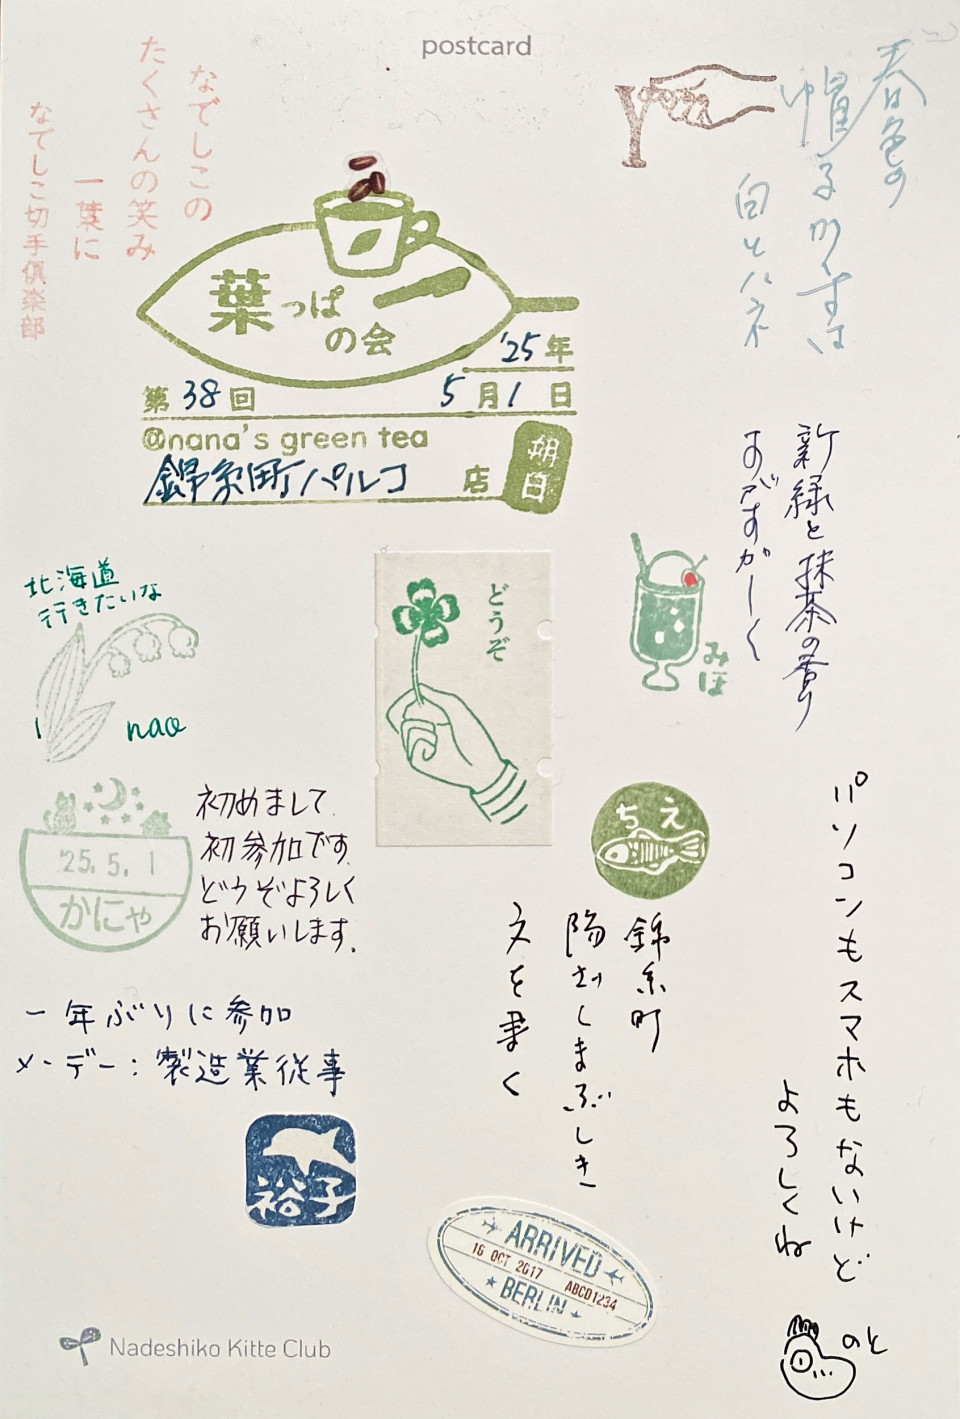 postcard
なでしこの
たくさんの笑み
一葉に
なでしこ切手倶楽部
春色の
帽子
白とハネ
葉っぱ
の会
'25年
第38回
5月1日
@nana's green tea
錦糸町パルコ店
朔日
新緑と抹茶の香り
すがすがしく
みほ
北海道
行きたいな
nao
どうぞ
'25.5.1
かにや
初めまして
初参加です
どうぞよろしく
お願いします。
ちえ
錦糸町
陽ざしまぶしき
文を書く
パソコンもスマホもないけど
よろしくね
のと
一年ぶりに参加
メーデー:製造業従事
裕子
ARRIVED
16 OCT 2017 ABCD1234
BERLIN
Nadeshiko Kitte Club